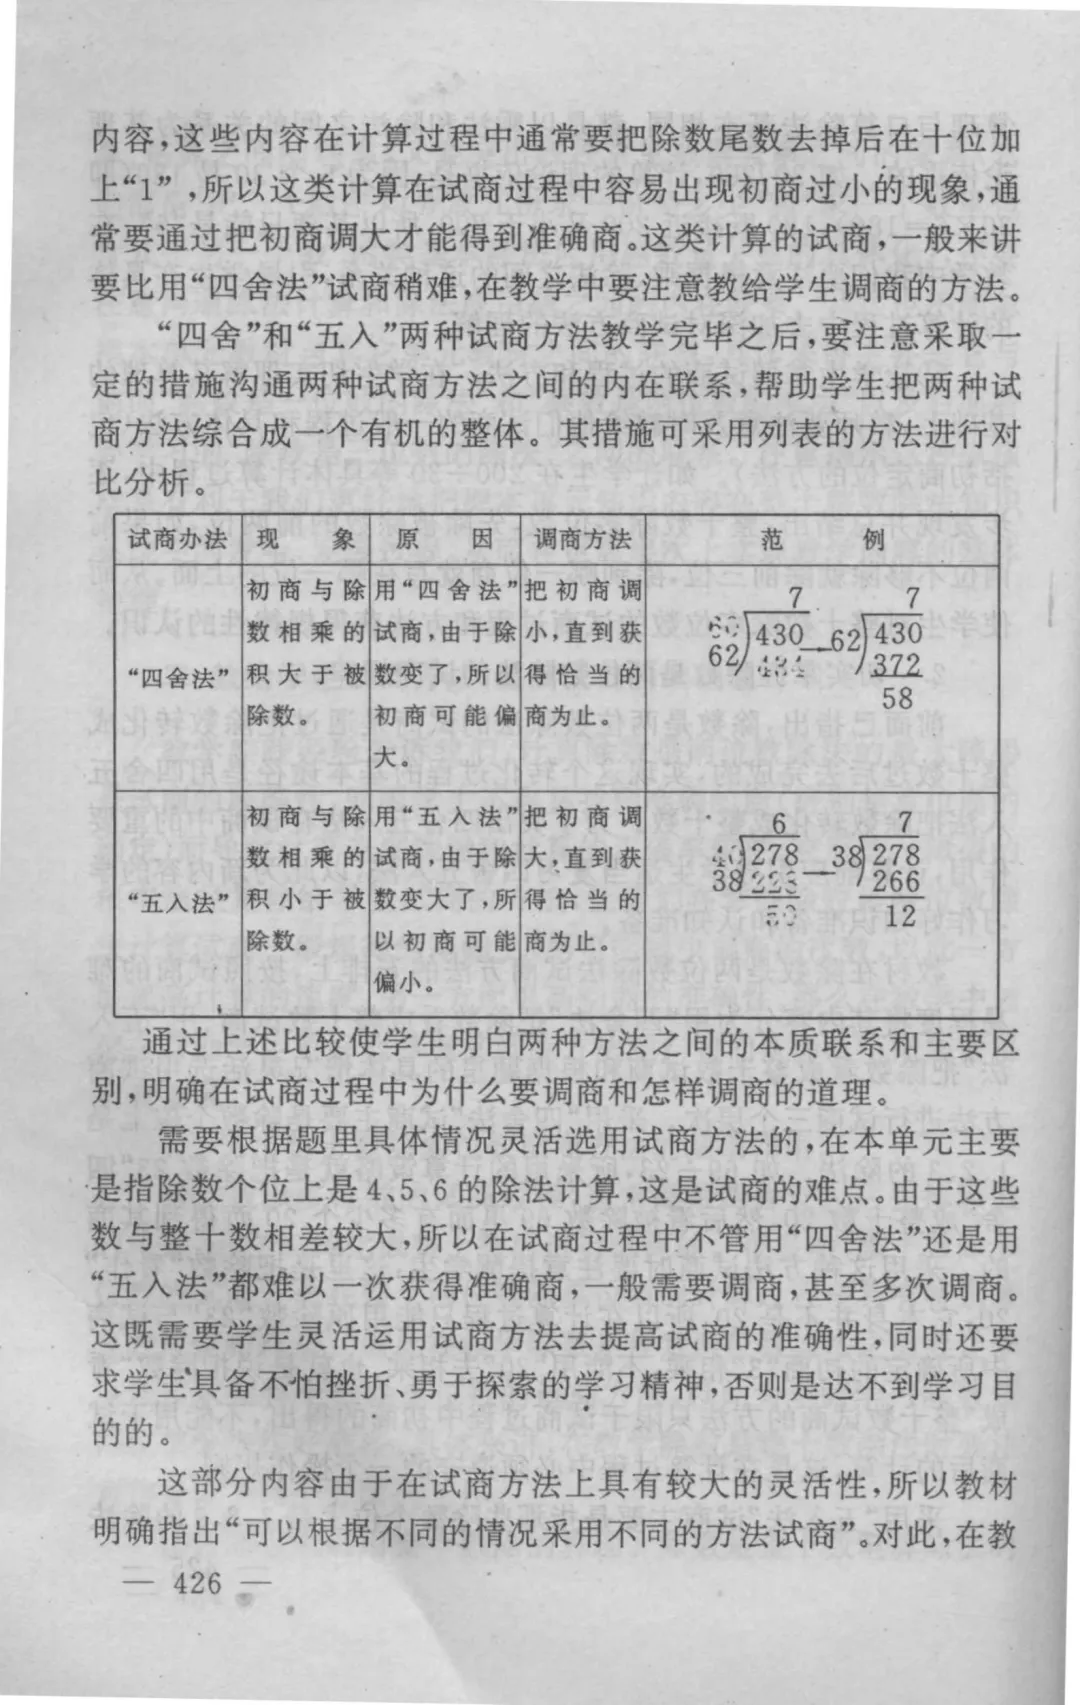 内容,这些内容在计算过程中通常要把除数尾数去掉后在十位加
上“1”,所以这类计算在试商过程中容易出现初商过小的现象,通
常要通过把初商调大才能得到准确商。这类计算的试商,一般来讲
要比用“四舍法”试商稍难,在教学中要注意教给学生调商的方法。
“四舍”和“五入”两种试商方法教学完毕之后,要注意采取一
定的措施沟通两种试商方法之间的内在联系,帮助学生把两种试
商方法综合成一个有机的整体。其措施可采用列表的方法进行对
比分析。
试商办法 现象 原因 调商方法 范例
“四舍法”
初商与除
数相乘的
积大于被
除数。
用“四舍法”
试商,由于除
数变了,所以
初商可能偏
大。
把初商调
小,直到获
得恰当的
商为止。
7 7
60 430 62 430
62 434 372
58
“五入法”
初商与除
数相乘的
积小于被
除数。
用“五入法”
试商,由于除
数变大了,所
以初商可能
偏小。
把初商调
大,直到获
得恰当的
商为止。
6 7
40 278 38 278
38 228 266
50 12
通过上述比较使学生明白两种方法之间的本质联系和主要区
别,明确在试商过程中为什么要调商和怎样调商的道理。
需要根据题里具体情况灵活选用试商方法的,在本单元主要
是指除数个位上是4、5、6的除法计算,这是试商的难点。由于这些
数与整十数相差较大,所以在试商过程中不管用“四舍法”还是用
“五入法”都难以一次获得准确商,一般需要调商,甚至多次调商。
这既需要学生灵活运用试商方法去提高试商的准确性,同时还要
求学生具备不怕挫折、勇于探索的学习精神,否则是达不到学习目
的的。
这部分内容由于在试商方法上具有较大的灵活性,所以教材
明确指出“可以根据不同的情况采用不同的方法试商”。对此,在教
— 426 —